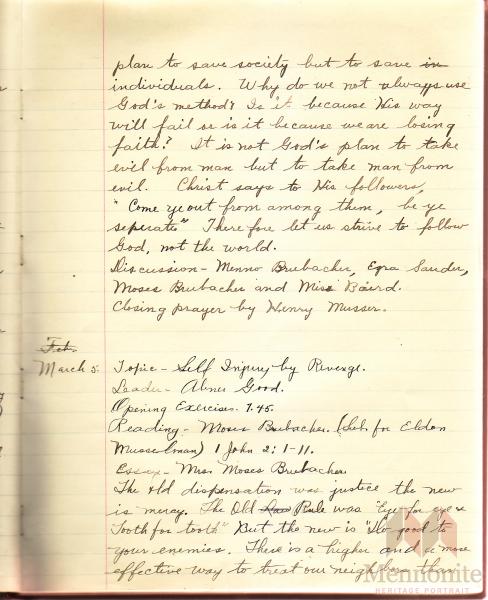 plan to save society but to save in
individuals. Why do we not always use
God's method? Is it because His way
will fail or is it because we are losing
faith? It is not God's plan to take
evil from man but to take man from
evil. Christ says to His followers,
"Come ye out from among them, be ye
seperate" Therefore let us strive to follow
God, not the world.
Discussion - Menno Brubacher, Ezra Sauder,
Moses Brubacher and Miss Baird.
Closing prayer by Henry Musser.
Feb.
March 5. Topic - Self Injury by Revenge.
Leader - Abner Good.
Opening Exercises. 7.45.
Reading - Moses Brubacher. (Sub. for Eldon
Musselman) 1 John 2: 1-11.
Essay - Mrs. Moses Brubacher.
The old dispensation was justice the new
is mercy. The Old Law Rule was "Eye for eye &
Tooth for tooth" But the new is "Do good to
your enemies. There is a higher and a more
effective way to treat our neighbor than
Mennonite
HERITAGE PORTRAIT